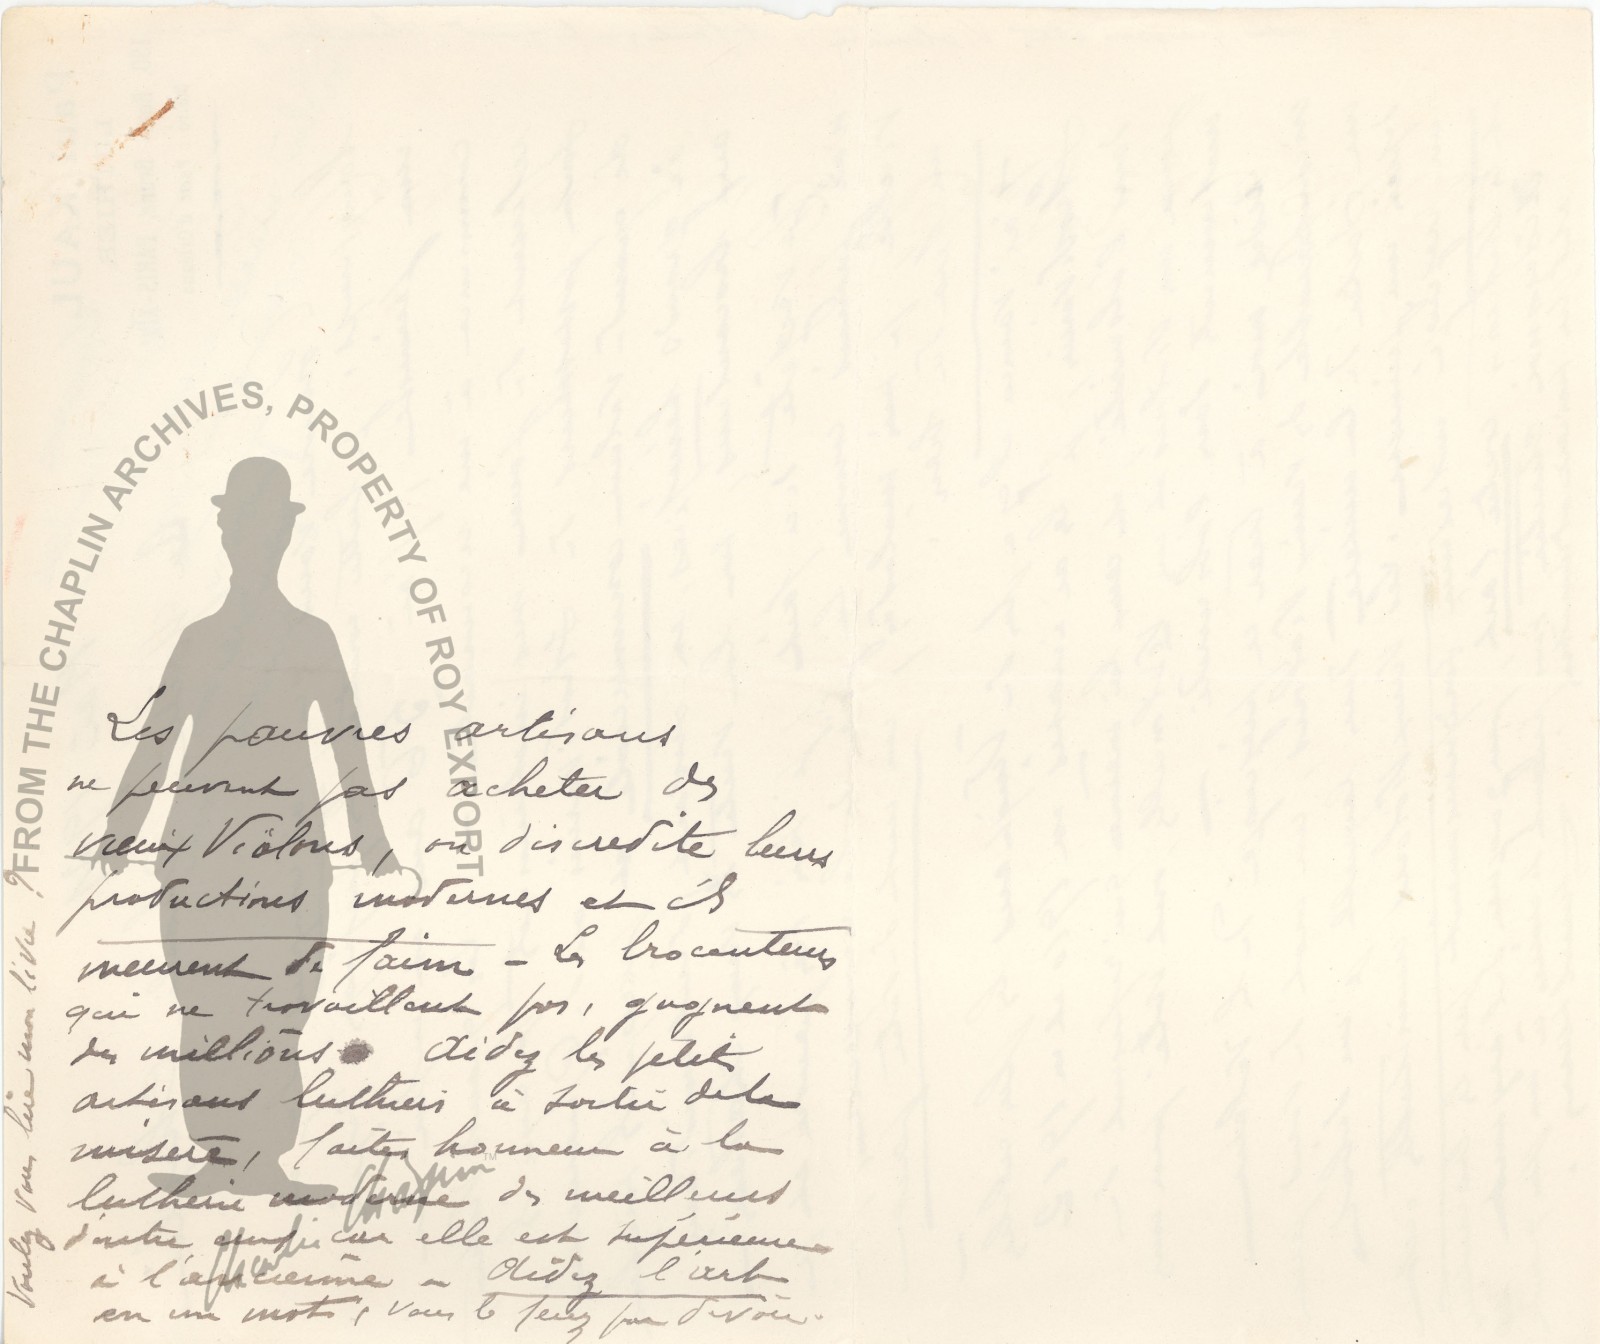 Les pauvres artisans
ne peuvent pas acheter des
vieux Violons, on discredite leurs
productions modernes et ils
meurent de faim – Les brocanteurs
qui ne travaillent pas, gagnent
des millions. Aidez les petits
artisans luthiers à sortir de la
misere, faites honneur à la
lutherie moderne des meilleurs
d'entre car elle est supérieure
à l'ancienne – Aidez l'art
en un mot, vous le ferez par devoir.
Voulez vous lire mon livre ?
FROM THE CHAPLIN ARCHIVES, PROPERTY OF ROY EXPORT